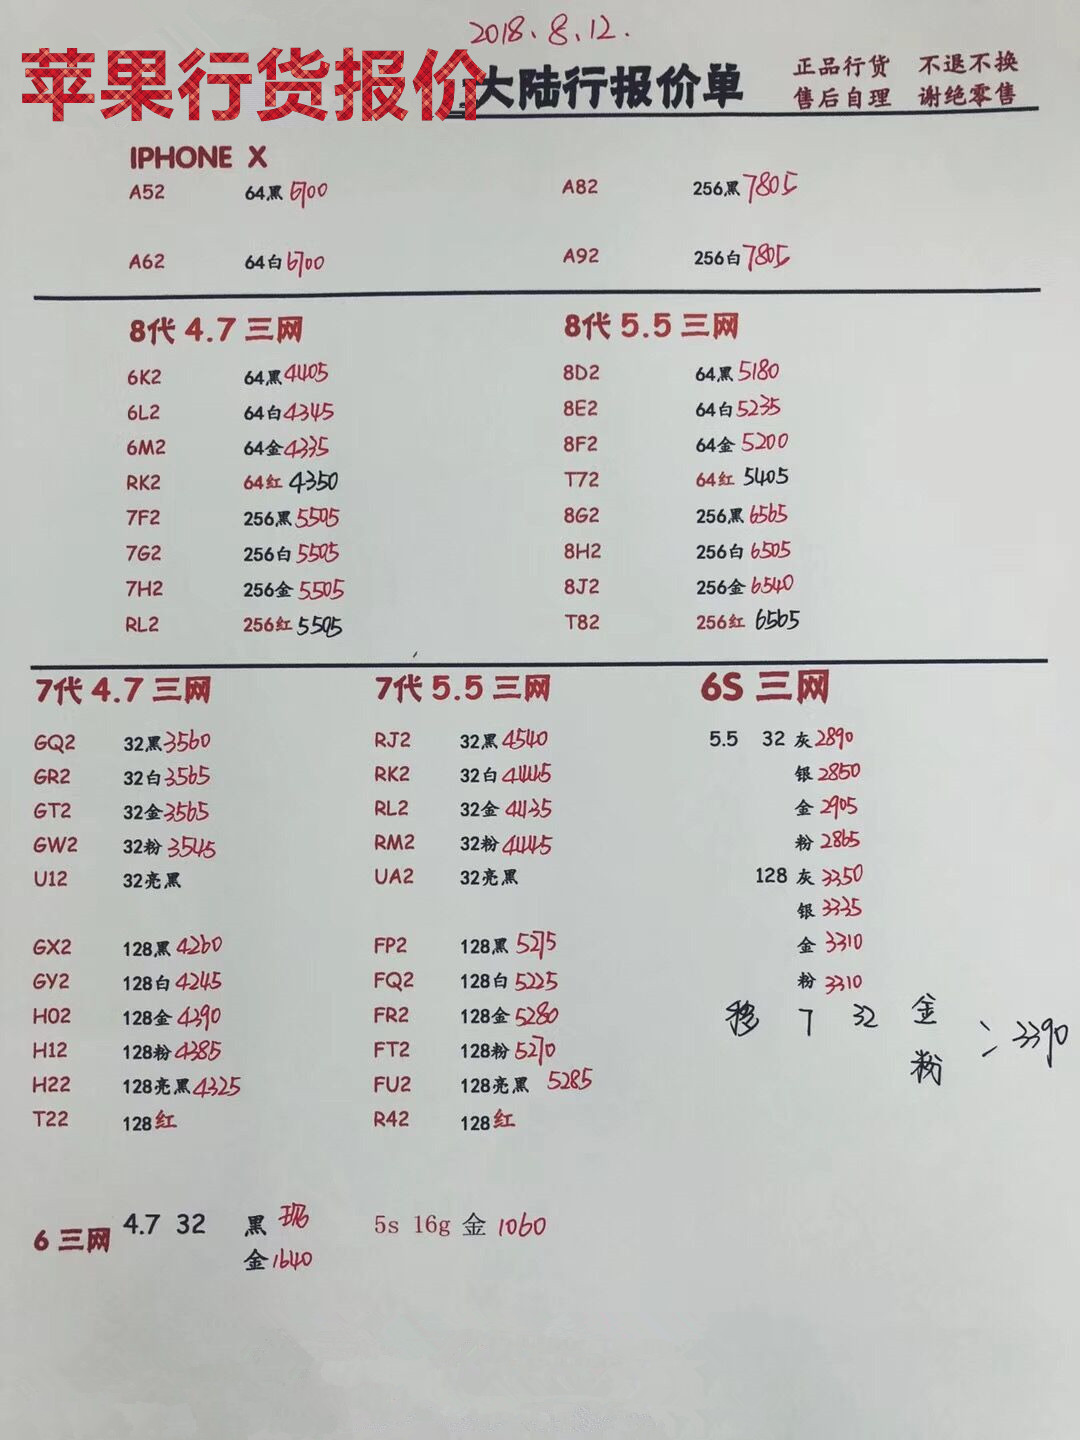 2018.8.12.
苹果行货报价
大陆行报价单
正品行货 不退不换
售后自理 谢绝零售
IPHONE X
A52 64黑 6700 A82 256黑 7805
A62 64白 6700 A92 256白 7805
8代 4.7 三网 8代 5.5 三网
6K2 64黑 4405 8D2 64黑 5180
6L2 64白 4345 8E2 64白 5235
6M2 64金 4335 8F2 64金 5200
RK2 64红 4350 T72 64红 5405
7F2 256黑 5505 8G2 256黑 6565
7G2 256白 5505 8H2 256白 6505
7H2 256金 5505 8J2 256金 6540
RL2 256红 5505 T82 256红 6565
7代 4.7 三网 7代 5.5 三网 6S 三网
GQ2 32黑 3560 RJ2 32黑 4540 5.5 32 灰 2890
GR2 32白 3565 RK2 32白 4445 银 2850
GT2 32金 3565 RL2 32金 4435 金 2905
GW2 32粉 3545 RM2 32粉 4445 粉 2865
U12 32亮黑 UA2 32亮黑 128 灰 3350
银 3335
GX2 128黑 4260 FP2 128黑 5275 金 3310
GY2 128白 4245 FQ2 128白 5225 粉 3310
H02 128金 4390 FR2 128金 5280 移 7 32 金
H12 128粉 4385 FT2 128粉 5270 粉 3390
H22 128亮黑 4325 FU2 128亮黑 5285
T22 128红 R42 128红
6 三网 4.7 32 黑 5s 16g 金 1060
金 1640